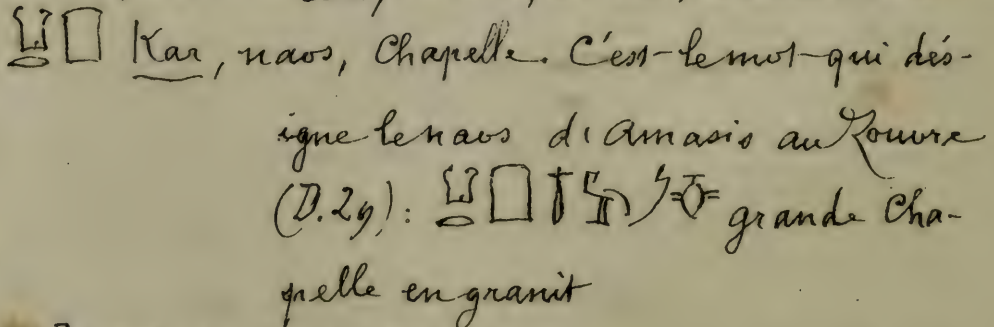 Kar, naos, Chapelle. C'est le mot qui dés-
igne le naos d'Amasis au Louvre
(D. 29): grande Cha-
pelle en granit